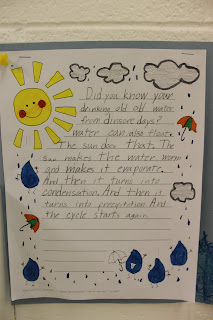 Did you know your
drinking old old water
from dinsore days?
water can also float.
The sun does that. The
sun makes the water warm
and makes it evaporate.
And then it turns into
condensation. And then it
turns into precpitation. And
the cycle starts again.